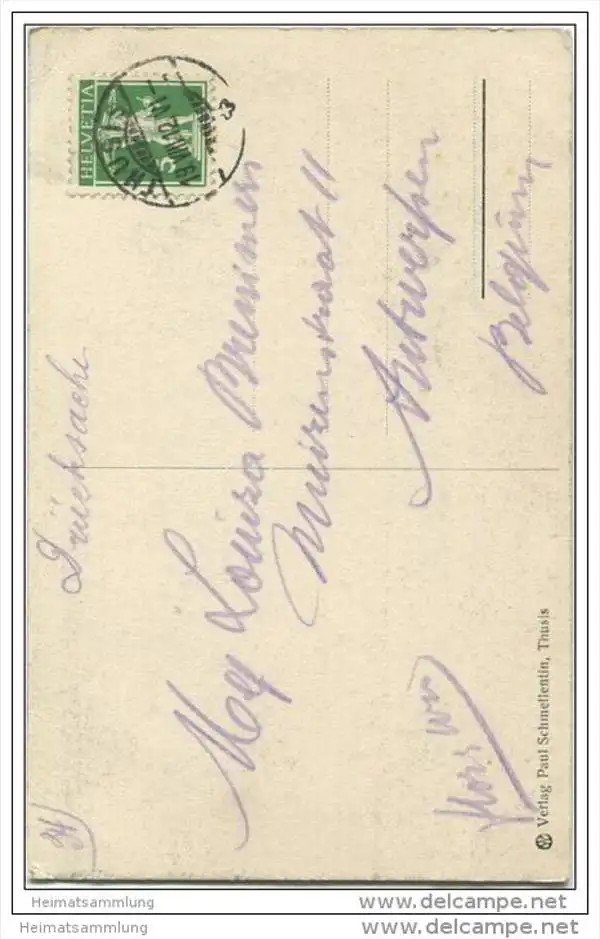 HELVETIA
5
THUSIS
Drücksache
Mej Louiza
Muizenstraat 11
Antwerpen
34
Verlag Paul Schmellentin, Thusis
Heimatsammlung
www.delcampe.net
Heimatsammlung
www.delcampe.net